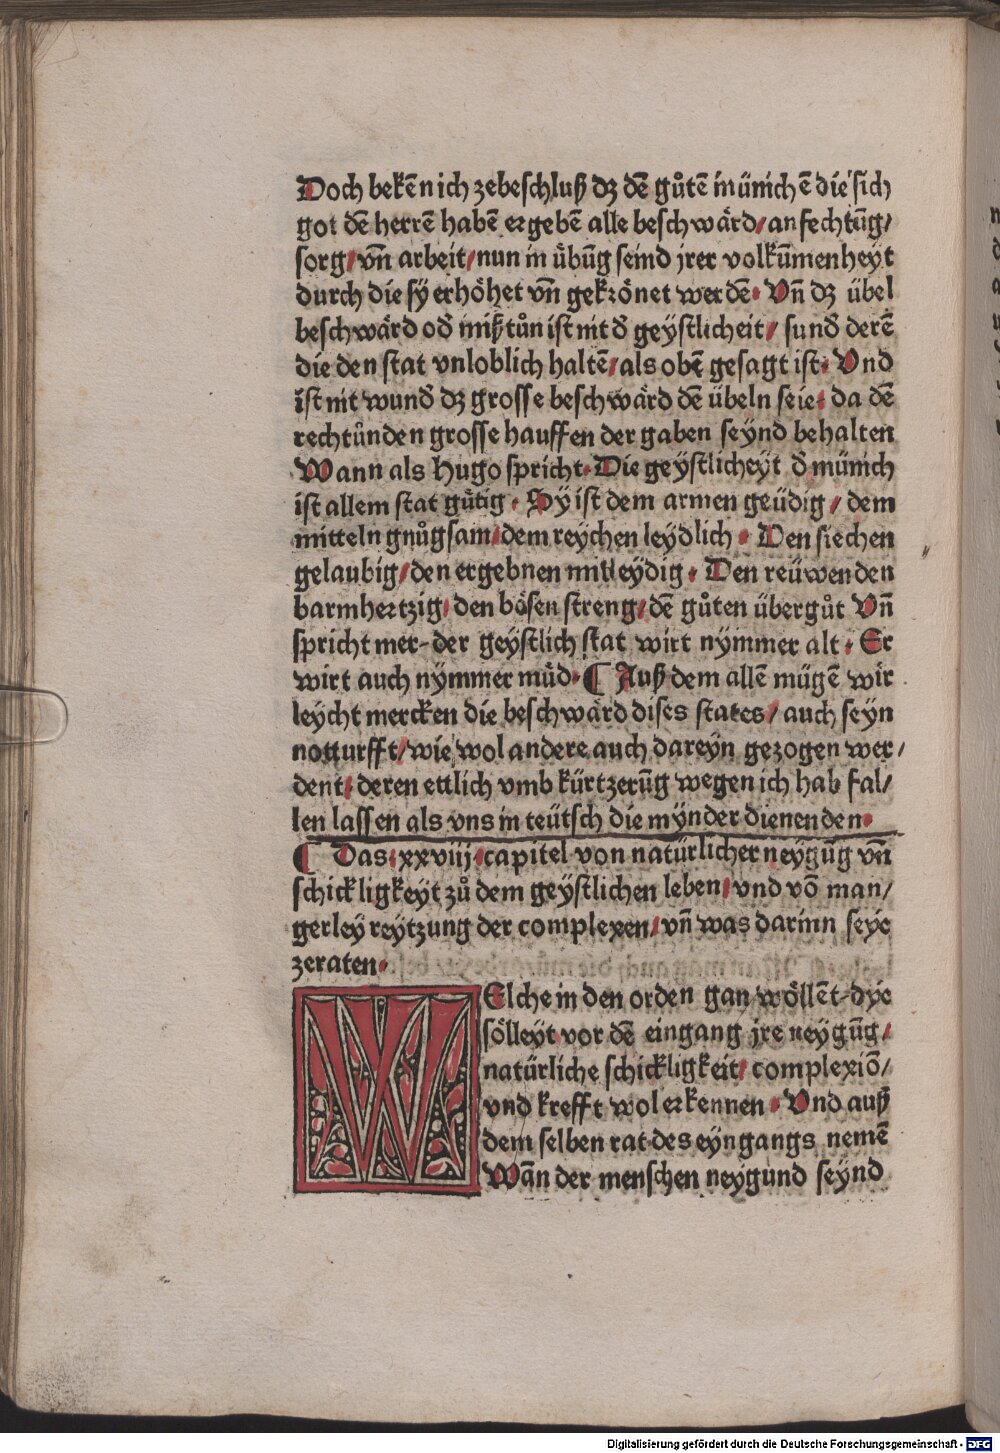 Doch bekēn ich zebeschluß dz dē gůtē münich ē die sich
got dē herrē habē ergebē alle beschwärd/ anfechtūg/
sorg/ vn̄ arbeit/ nun in übūg seind jrer volkūmenheyt
durch die sÿ erhöhet vn̄ gekrönet werdē. Vn̄ dz übel
beschwärd od̄ mißtůn ist nit d̄ geÿstlicheit/ sund̄ derē
die den stat vnloblich haltē/ als obē gesagt ist. Vnd
ist nit wund̄ dz grosse beschwärd dē übeln seie. da dē
rechtůnden grosse hauffen der gaben seÿnd behalten
Wann als Hugo spricht. Die geÿstlicheyt d̄ münich
ist allem stat gůtig. Sÿ ist dem armen geüdig/ dem
mitteln gnůgsam/ dem reÿchen leÿdlich. Den siechen
gelaubig/ den ergebnen mitleÿdig. Den reüwenden
barmhertzig/ den bösen streng/ dē gůten übergůt Vn̄
spricht mer. der geÿstlich stat wirt nÿmmer alt. Er
wirt auch nÿmmer müd. ¶ Auß dem allē mügē wir
leÿcht mercken die beschwärd dises states/ auch seyn
notturfft/ wie wol andere auch dareÿn gezogen wer/
dent. deren ettlich vmb kürtzerūg wegen ich hab fal/
len lassen als vns in teütsch die mÿnder dienenden.
¶ Das. xxviij. capitel von natürlicher neÿgūg vn̄
schickligkeÿt zů dem geÿstlichen leben/ vnd vō man/
gerleÿ reÿtzung der complexen/ vn̄ was darinn seÿe
zeraten.
WElche in den orden gan wöllēt. dÿe
sölleÿt vor dē eingang jre neÿgūg/
natürliche schickligkeit/ complexiō/
vnd krefft wol erkennen. Vnd auß
dem selben rat des eÿngangs nemē
Wān der menschen neÿgund seÿnd
Digitalisierung gefördert durch die Deutsche Forschungsgemeinschaft - DFG